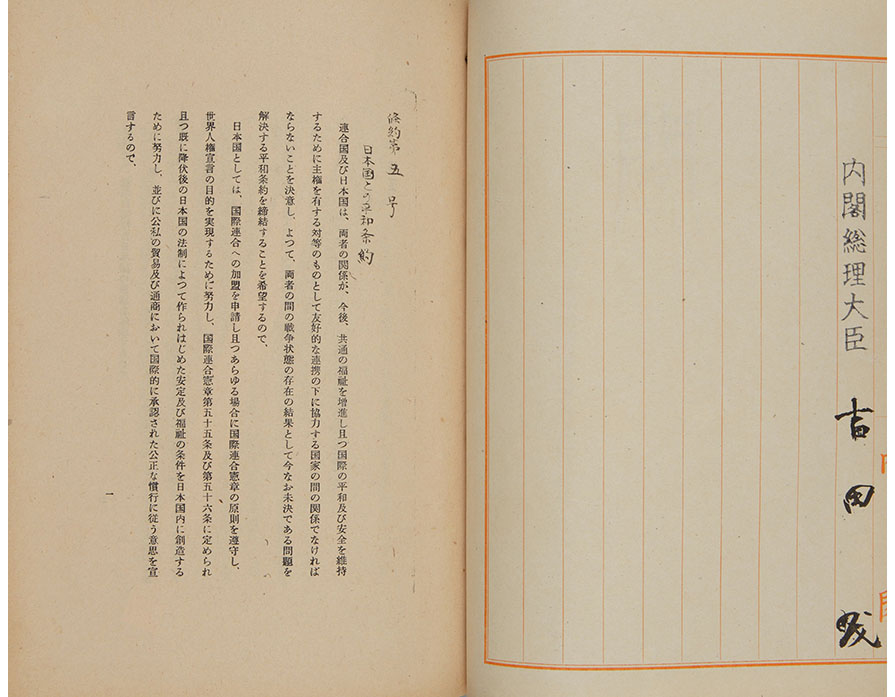 内閣総理大臣 吉田茂
條約第五号
日本国との平和条約
連合国及び日本国は、両者の関係が、今後、共通の福祉を増進し且つ国際の平和及び安全を維持
するために主権を有する対等のものとして友好的な連携の下に協力する国家の間の関係でなければ
ならないことを決意し、よつて、両者の間の戦争状態の存在の結果として今なお未決である問題を
解決する平和条約を締結することを希望するので、
日本国としては、国際連合への加盟を申請し且つあらゆる場合に国際連合憲章の原則を遵守し、
世界人権宣言の目的を実現するために努力し、国際連合憲章第五十五条及び第五十六条に定められ
且つ既に降伏後の日本国の法制によつて作られはじめた安定及び福祉の条件を日本国内に創造する
ために努力し、並びに公私の貿易及び通商において国際的に承認された公正な慣行に従う意思を宣
言するので、
一